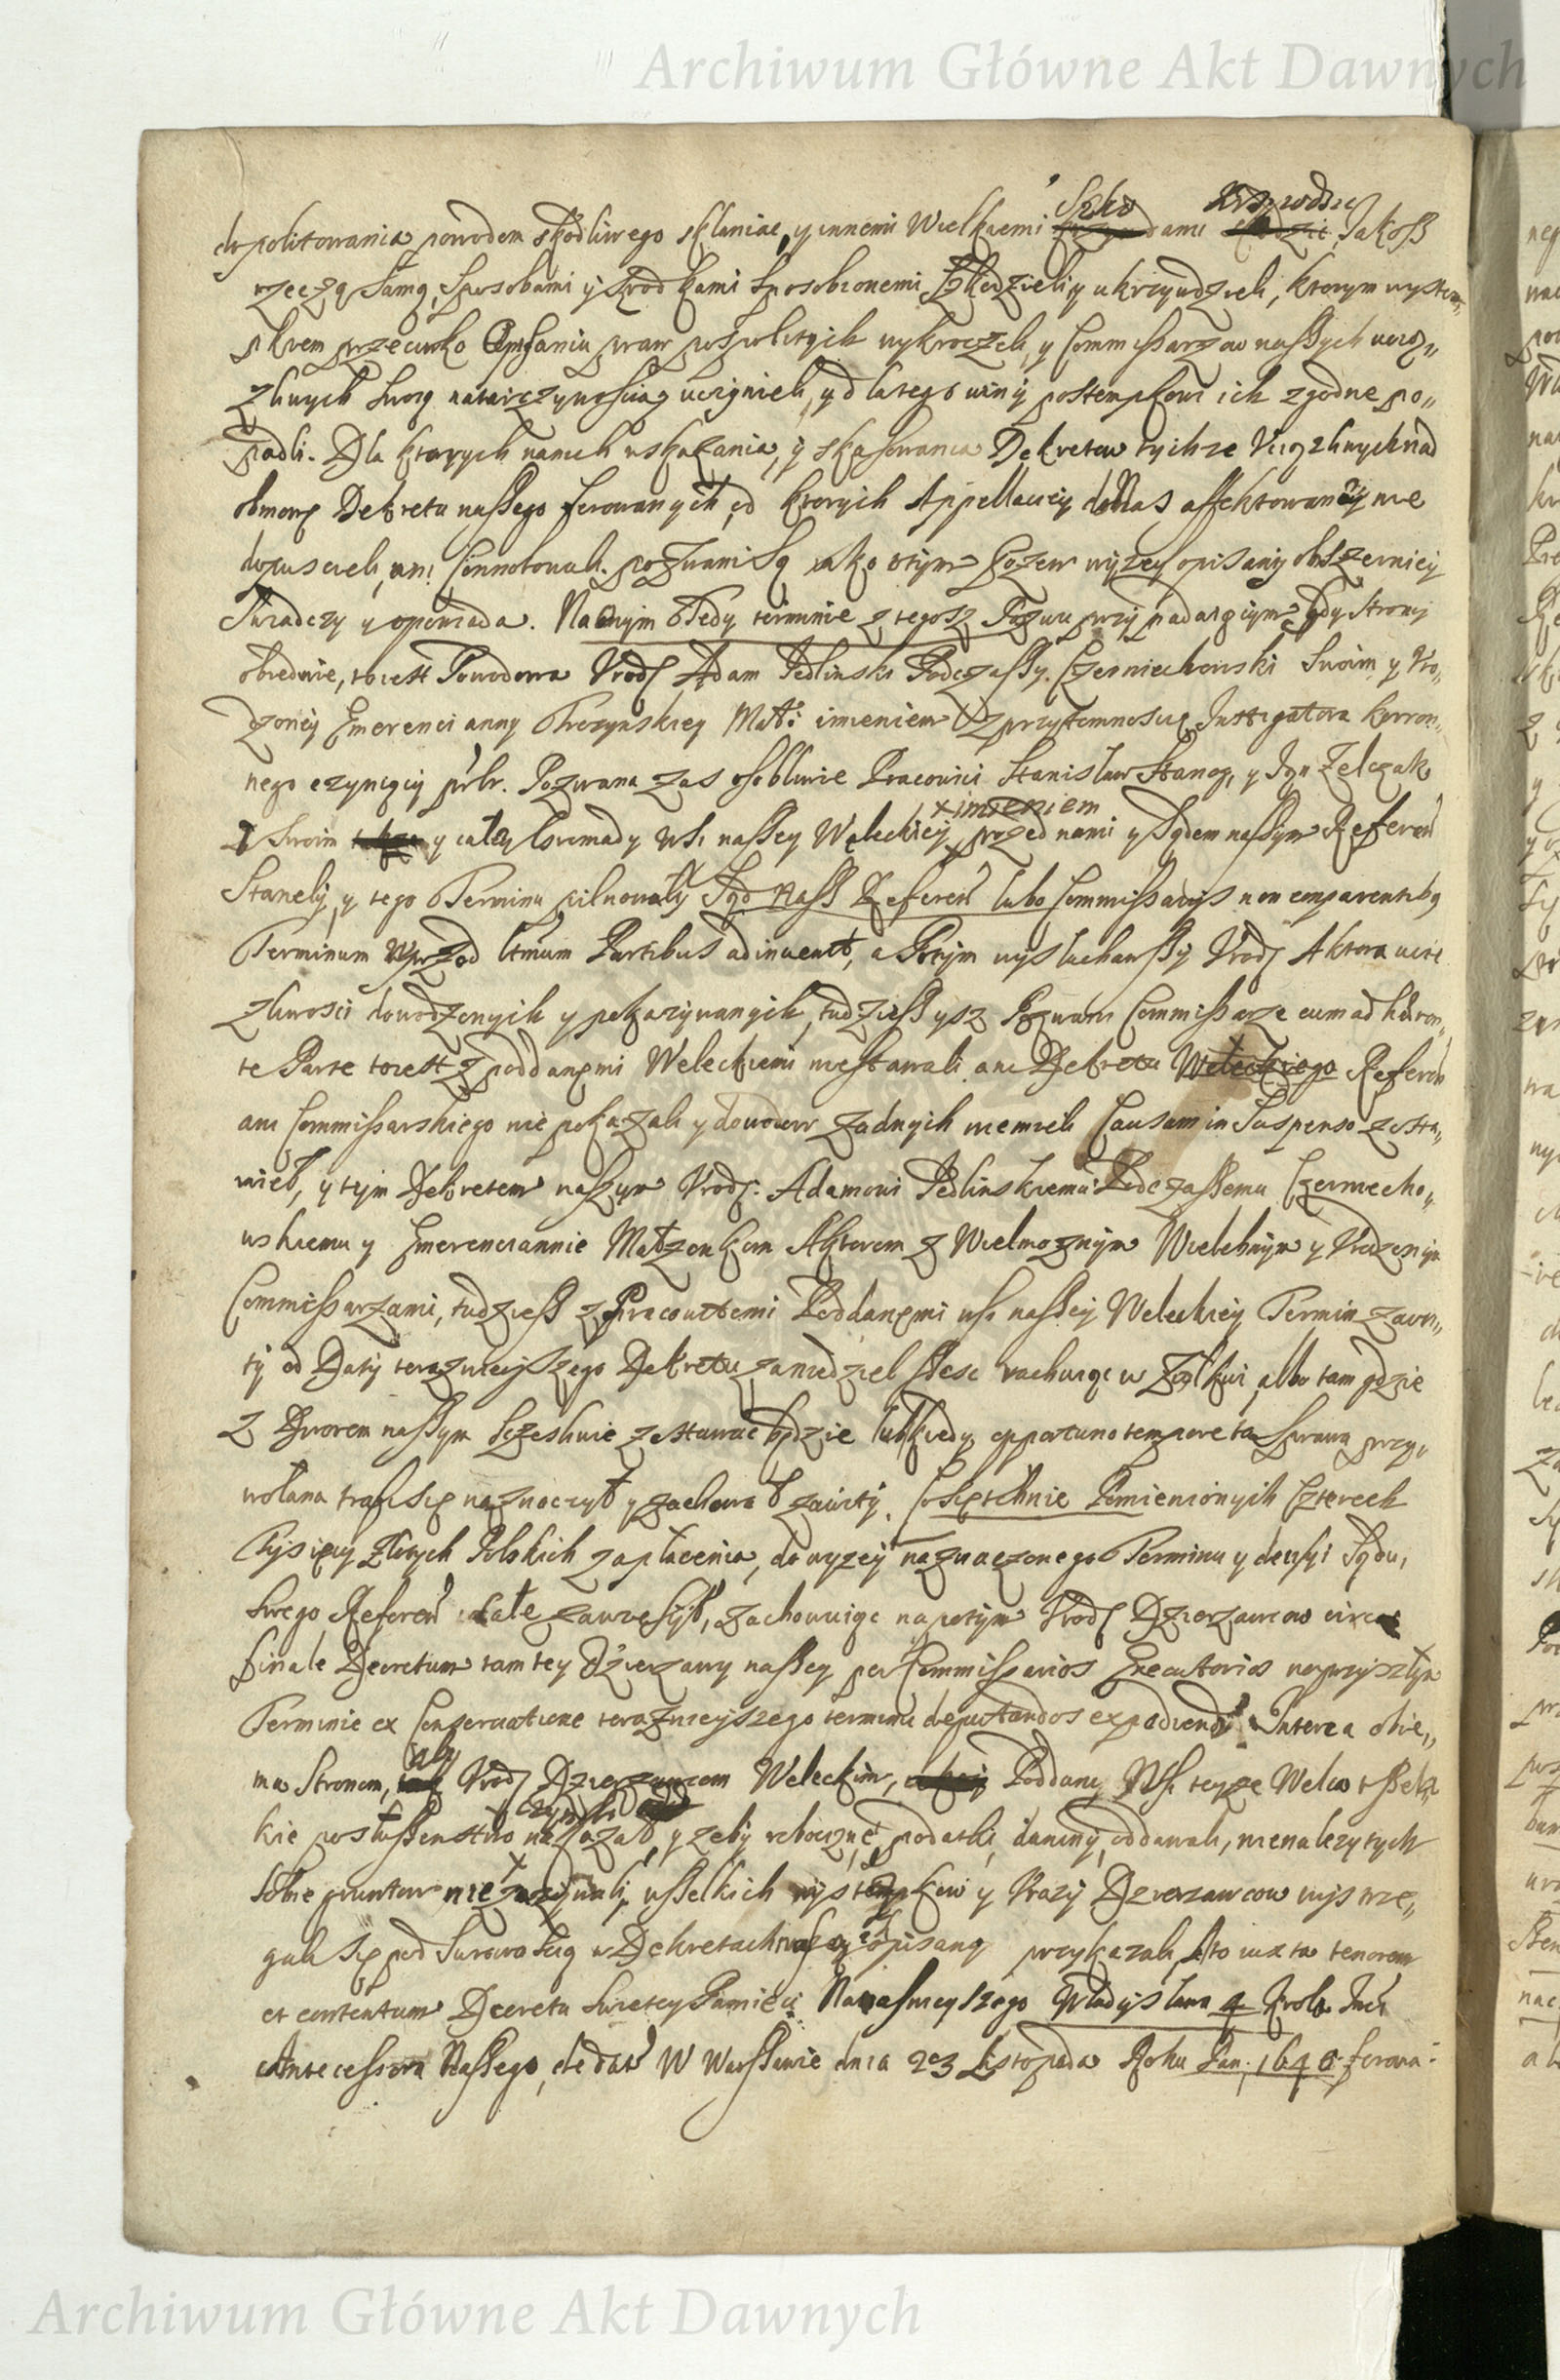 Archiwum Główne Akt Dawnych
do politowania powodem skodliwego skłaniać, y innemi Wielkiemi Szkodami Krzywdzić Jakosz
rzeczą Samą, Sposobami y srodkami Sposobionemi Szkodzieli y ukrzywdzieli, ktorym wystem,,
pkiem przeciwko Opisaniu praw pospolitych wykroczeli, y Commissarzow naszych uciąz,,
zliwych Swoią natarczywoscią uciągnieli, y dlatego winy postempkowi ich zgodne po,,
padli. Dla ktorych na nich wskazania, y skasowania Dekretow tychze Uciązliwych nad
obmowę Dekretu naszego ferowanych, od ktorych Appellaciey do Nas affektowaney nie
dopuscieli, ani Connotowali. pozwani Są iako o tym Pozew wyzey opisany obszerniey
Swiadczy y opowiada. Na onym Tedy terminie z tegosz Pozwu przypadaiącym, gdy Strony
obiedwie, to iest Powodowa Urodz Adam Pedlinski Podczaszy Czerniechowski Swoim y Uro,,
dzoney Emerencianny Trczynskiey Małż: imieniem z przytomnoscią Instigatora Korron,,
nego czyniący przbr. Pozwana zas osobliwie Pracowici Stanisław Stanog, y Jan Zelczak
Swoim y całey Gromady wsi naszey Weleckiey imieniem przed nami y Sądem naszym Referen
Staneły, y tego Terminu pilnowały Sąd Nasz Referen lubo Commissariis non comparentibg
Terminum Wprzod ltmum Partibus adinvenit, a Potym wysłuchawszy Urodz Aktora uciąz
zliwosci dowodzonych y pokazywanych, tudziesz ysz Pozwani Commissarze cum adhaeren,,
te Parte to iest z poddanemi Weleckiemi nie stawali ani Dekretu Weleckiego Referen
ani Commissarskiego nie pokazali y dowodow zadnych nie mieli Causam in Suspenso zosta,,
wieł, y tym Dekretem naszym Urodz. Adamowi Pedlinskiemu Podczaszemu Czerniecho,,
wskiemu y Emerenciannie Małzonkom Aktorom z Wielmoznym Wielebnym y Urodzonym
Commissarzami, tudziesz z Pracowitemi Poddanemi wsi naszey Weleckiey Termin zawi,,
ty od Daty teraznieyszego Dekretu za niedziel szesc rachuiąc w Zołkwi, albo tam gdzie
z Dworem naszym Sczesliwie zostawac będzie lub kiedy opportuno tempore ta Sprawa przy,,
wołana trafi się naznoczył y zachował zawity. Co się tchnie Pomienionych Czterech
Tysięcy Złotych Polskich zapłacenia, do wyzey naznaczonego Terminu y decisyi Sądu,
Swego Referen całe zawiesił, zachowuiąc na potym Urodz Dzierzawcow circa
finale Decretum tamtey dzierzawy naszey per Commissarios Executorios na przyszłym
Terminie ex Conservatione teraznieyszego terminu deputandos expediendi. Interea obie,,
ma Stronom, aby Urodz Dzierzawcom Weleckim, Poddani Wsi teyze Welec wszela
kie posłuszenstwo czynili nakazał, y zeby robocizne, podatki, daniny, oddawali, nienalezytych
Sobie gruntow nie zazywali, wszelkich wystempkow y Urazy Dzierzawcow wystrze,,
gali Się pod Surowoscią w Dekretach naszych opisaną przykazali, Ato iuxta tenorem
et contentum Decreti Swietey Pamięci Naiasnieyszego Władysława 4 Krola Imci
Antecessora Naszego, de dato W Warszawie dnia 23 Listopada Roku Pan: 1640 ferowa:
Archiwum Główne Akt Dawnych